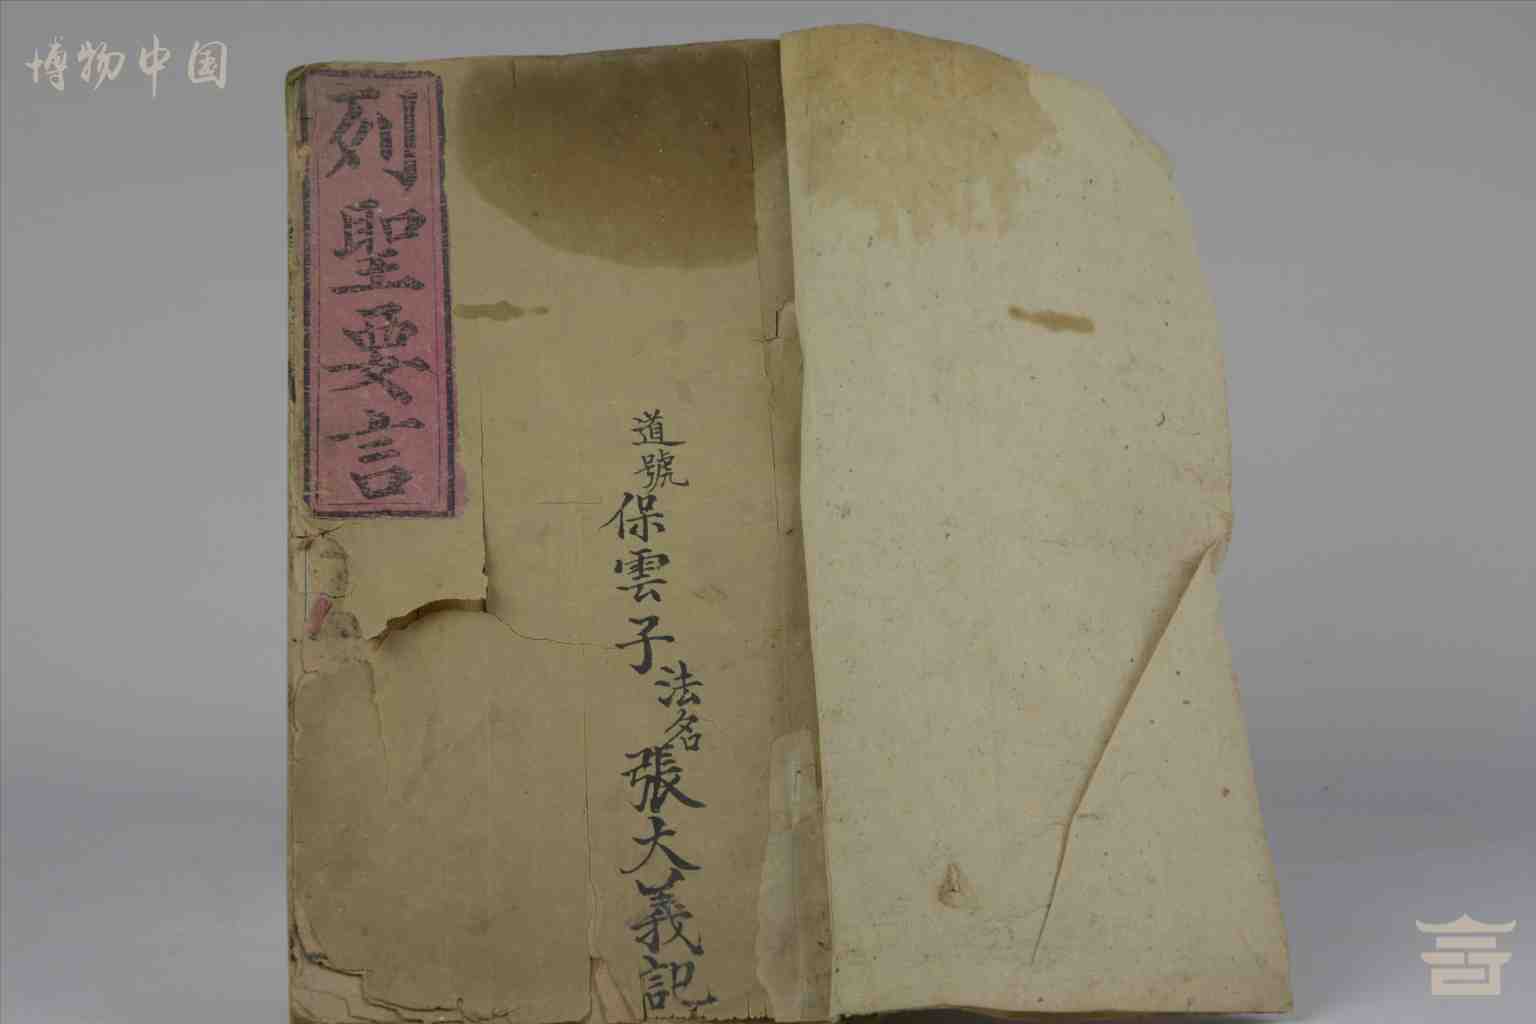 博物中国
列聖要言
道號保雲子法名張大義記